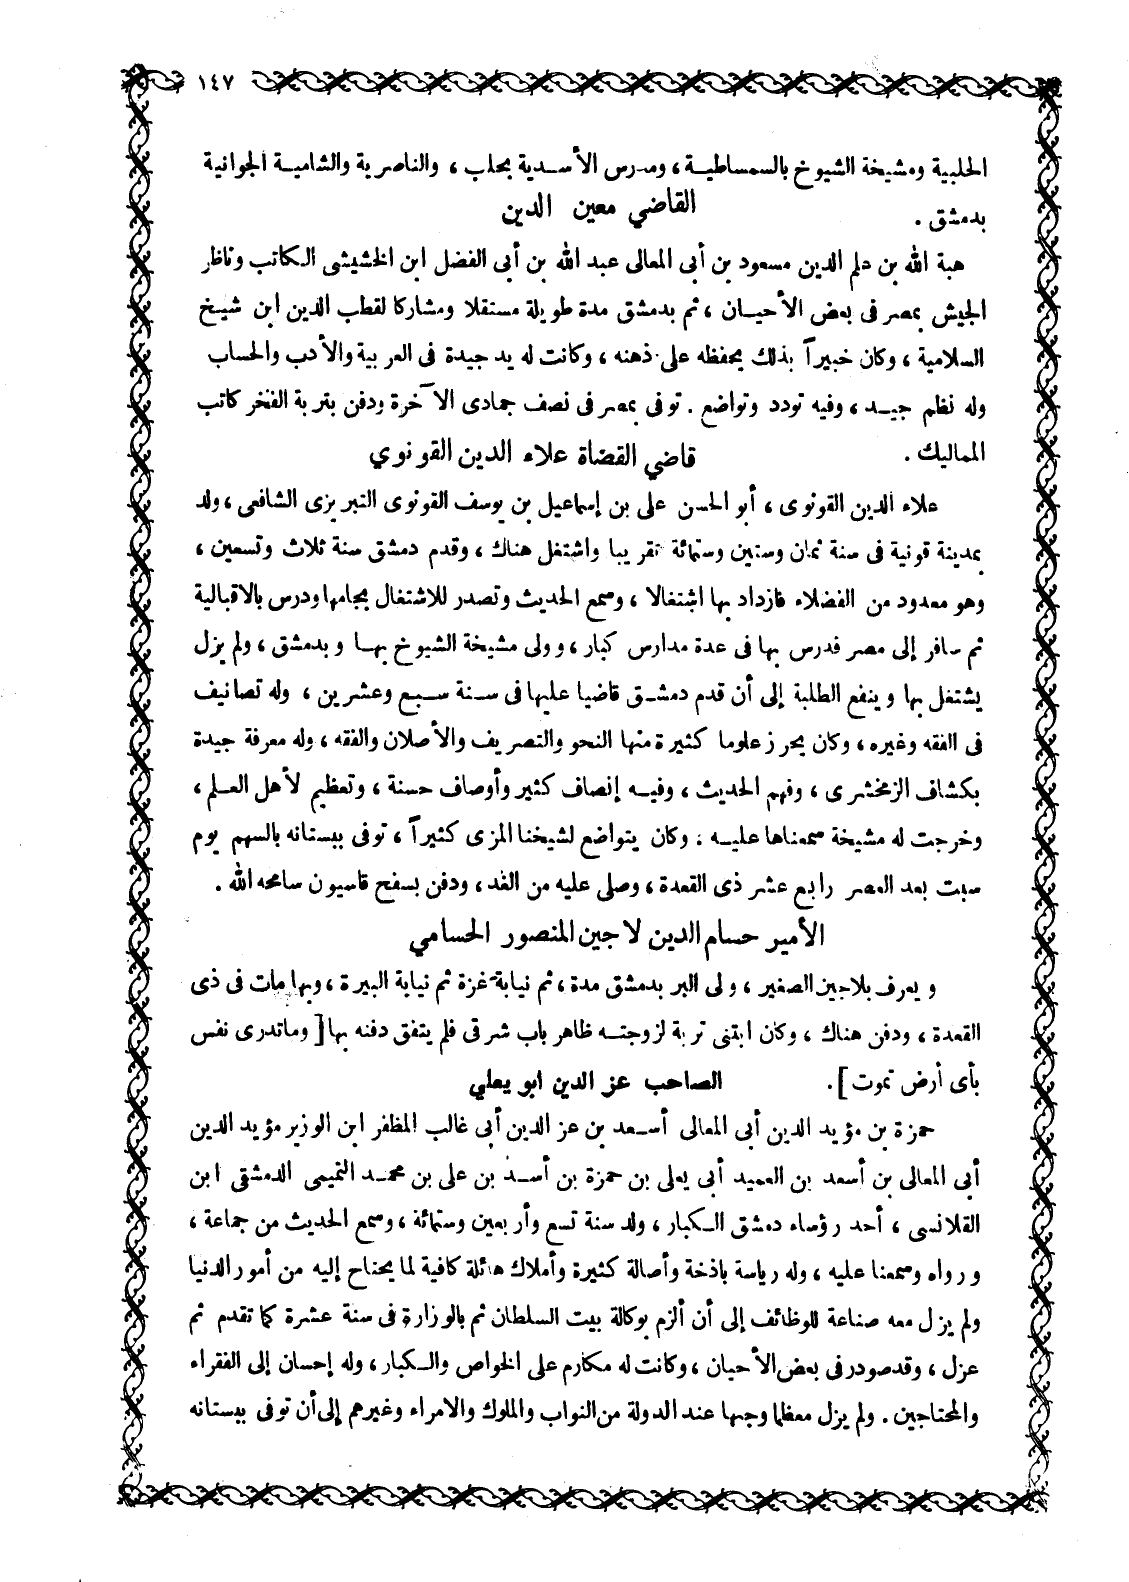 ١٤٧
الحلبية ومشيخة الشيوخ بالسمساطية ، ومدرس الأسدية بحلب ، والناصرية والشامية الجوانية
بدمشق .
القاضي معين الدين
هبة الله بن علم الدين مسعود بن أبى المعالى عبد الله بن أبى الفضل ابن الخشيشى الكاتب وناظر
الجيش بمصر فى بعض الأحيان ، ثم بدمشق مدة طويلة مستقلا ومشاركا لقطب الدين ابن شيخ
السلامية ، وكان خبيراً بذلك يحفظه على ذهنه ، وكانت له يد جيدة فى العربية والأدب والحساب
وله نظم جيد ، وفيه تودد وتواضع . توفى بمصر فى نصف جمادى الآخرة ودفن بتربة الفخر كاتب
المماليك .
قاضي القضاة علاء الدين القونوي
علاء الدين القونوى ، أبو الحسن على بن إسماعيل بن يوسف القونوى التبريزى الشافعى ، ولد
بمدينة قونية فى سنة ثمان وستين وستمائة تقريبا واشتغل هناك ، وقدم دمشق سنة ثلاث وتسعين ،
وهو معدود من الفضلاء فازداد بها اشتغالا ، وسمع الحديث وتصدر للاشتغال بجامعها ودرس بالاقبالية
ثم سافر إلى مصر فدرس بها فى عدة مدارس كبار ، وولى مشيخة الشيوخ بها وبدمشق ، ولم يزل
يشتغل بها وينفع الطلبة إلى أن قدم دمشق قاضيا عليها فى سنة سبع وعشرين ، وله تصانيف
فى الفقه وغيره ، وكان يحرز علوما كثيرة منها النحو والتصريف والأصلان والفقه ، وله معرفة جيدة
بكشاف الزمخشرى ، وفهم الحديث ، وفيه إنصاف كثير وأوصاف حسنة ، وتعظيم لأهل العلم ،
وخرجت له مشيخة سمعناها عليه ، وكان يتواضع لشيخنا المزى كثيراً ، توفى ببستانه بالسهم يوم
سبت بعد العصر رابع عشر ذى القعدة ، وصلى عليه من الغد ، ودفن بسفح قاسيون سامحه الله .
الأمير حسام الدين لاجين المنصور الحسامي
ويعرف بلاجين الصغير ، ولى البر بدمشق مدة ، ثم نيابة غزة ثم نيابة البيرة ، وبها مات فى ذى
القعدة ، ودفن هناك ، وكان ابتنى تربة لزوجته ظاهر باب شرقى فلم يتفق دفنه بها [ وماتدرى نفس
بأى أرض تموت ] .
الصاحب عز الدين ابو يعلي
حمزة بن مؤيد الدين أبى المعالى أسعد بن عز الدين أبى غالب المظفر ابن الوزير مؤيد الدين
أبى المعالى بن أسعد بن العميد أبى يعلى بن حمزة بن أسد بن على بن محمد التميمى الدمشقى ابن
القلانسى ، أحد رؤساء دمشق الكبار ، ولد سنة تسع وأربعين وستمائة ، وسمع الحديث من جماعة ،
ورواه وسمعنا عليه ، وله رياسة باذخة وأصالة كثيرة وأملاك هائلة كافية لما يحتاج إليه من أمور الدنيا
ولم يزل معه صناعة للوظائف إلى أن ألزم بوكالة بيت السلطان ثم بالوزارة فى سنة عشرة كما تقدم ثم
عزل ، وقد صودر فى بعض الأحيان ، وكانت له مكارم على الخواص والكبار ، وله إحسان إلى الفقراء
والمحتاجين . ولم يزل معظما وجيها عند الدولة من النواب والملوك والامراء وغيرهم إلى أن توفى ببستانه